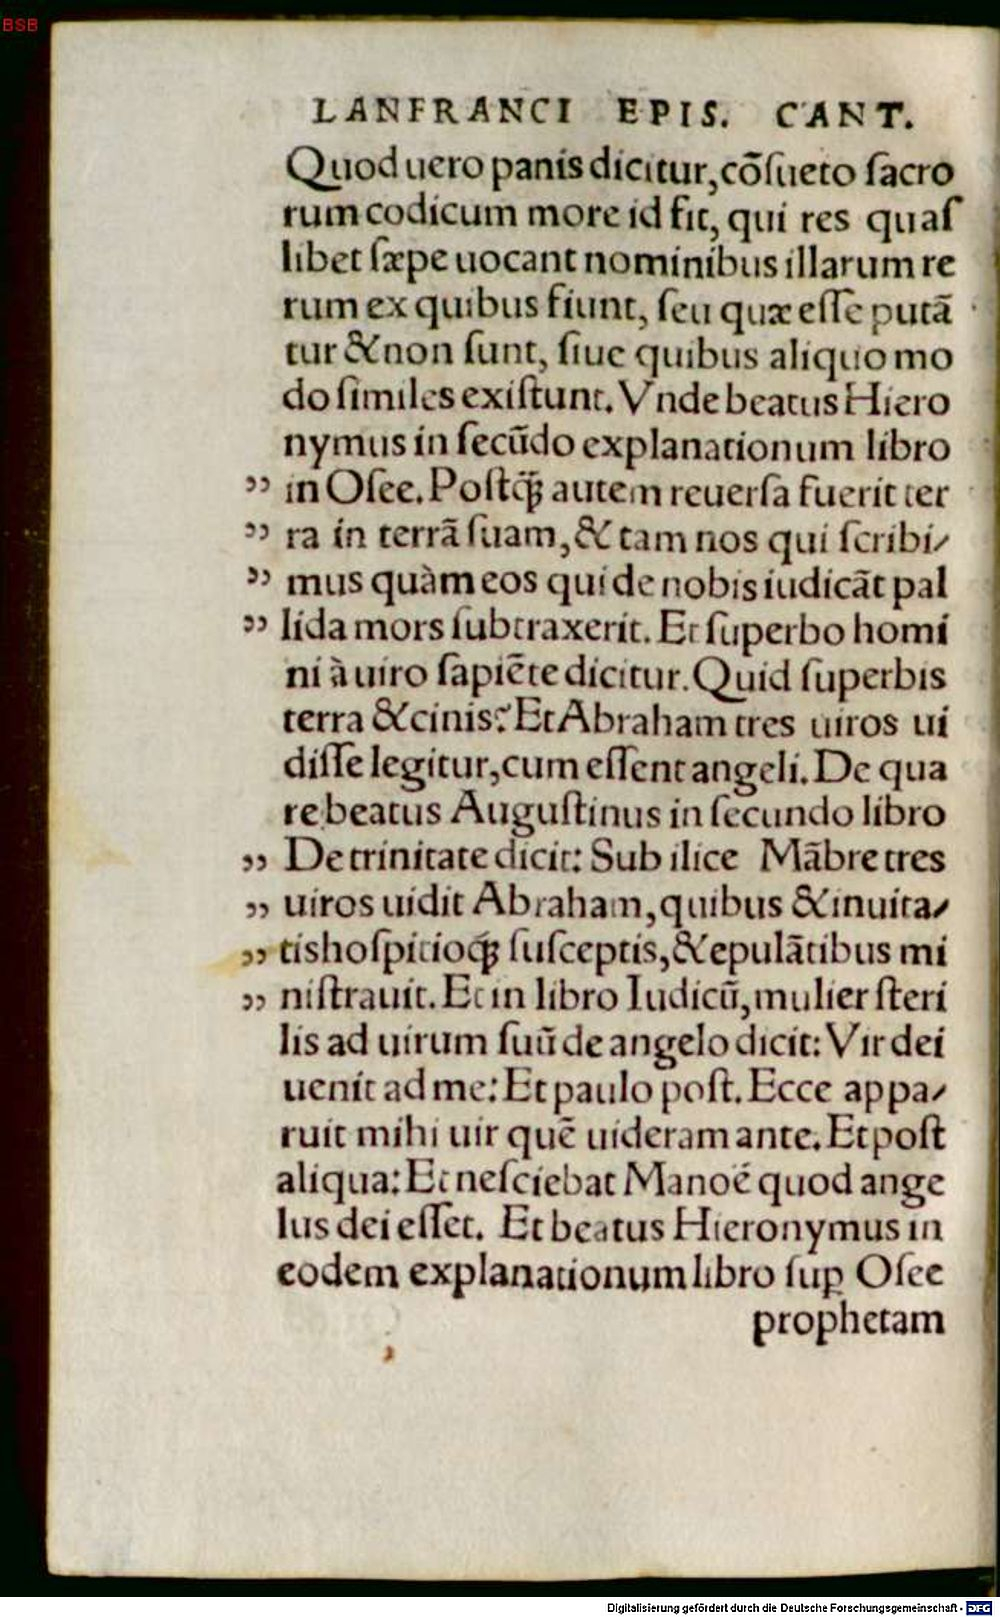 BSB
LANFRANCI EPIS. CANT.
Quod uero panis dicitur,cõſueto ſacro
rum codicum more id fit, qui res quaſ
libet ſæpe uocant nominibus illarum re
rum ex quibus fiunt, ſeu quæ eſſe putã
tur & non ſunt, ſiue quibus aliquo mo
do ſimiles exiſtunt. Vnde beatus Hiero
nymus in ſecũdo explanationum libro
„ in Oſee. Poſtꝗ̃ autem reuerſa fuerit ter
„ ra in terrã ſuam,& tam nos qui ſcribi⸗
„ mus quàm eos qui de nobis iudicãt pal
„ lida mors ſubtraxerit. Et ſuperbo homi
ni à uiro ſapiẽte dicitur. Quid ſuperbis
terra & cinis? Et Abraham tres uiros ui
diſſe legitur,cum eſſent angeli. De qua
re beatus Auguſtinus in ſecundo libro
„ De trinitate dicit: Sub ilice Mãbre tres
„ uiros uidit Abraham,quibus & inuita⸗
„ tis hoſpitioq̃ꝫ ſuſceptis,& epulãtibus mi
„ niſtrauit. Et in libro Iudicũ,mulier ſteri
lis ad uirum ſuũ de angelo dicit: Vir dei
uenit ad me: Et paulo poſt. Ecce appa⸗
ruit mihi uir quẽ uideram ante. Et poſt
aliqua: Et neſciebat Manoé quod ange
lus dei eſſet. Et beatus Hieronymus in
eodem explanationum libro ſuꝑ Oſee
prophetam
Digitalisierung gefördert durch die Deutsche Forschungsgemeinschaft - DFG